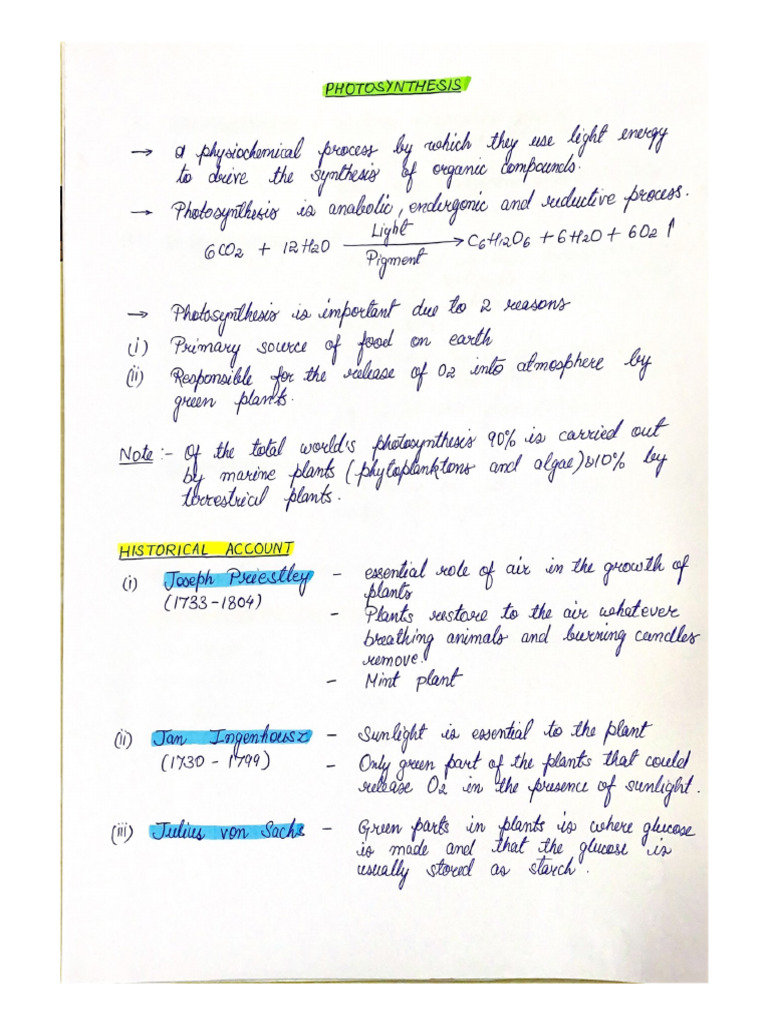 PHOTOSYNTHESIS
→ a physiochemical process by which they use light energy
to drive the synthesis of organic compounds.
→ Photosynthesis is anabolic, endergonic and reductive process.
6CO2 + 12H2O Light Pigment → C6H12O6 + 6H2O + 6O2 ↑
→ Photosynthesis is important due to 2 reasons
(i) Primary source of food on earth
(ii) Responsible for the release of O2 into atmosphere by
green plants.
Note :- Of the total world's photosynthesis 90% is carried out
by marine plants (phytoplanktons and algae) & 10% by
terrestrial plants.
HISTORICAL ACCOUNT
(i) Joseph Priestley - essential role of air in the growth of
plants
(1733-1804)
- Plants restore to the air whatever
breathing animals and burning candles
remove.
- Mint plant
(ii) Jan Ingenhousz - Sunlight is essential to the plant
(1730 - 1799)
- Only green part of the plants that could
release O2 in the presence of sunlight.
(iii) Julius von Sachs - Green parts in plants is where glucose
is made and that the glucose is
usually stored as starch.